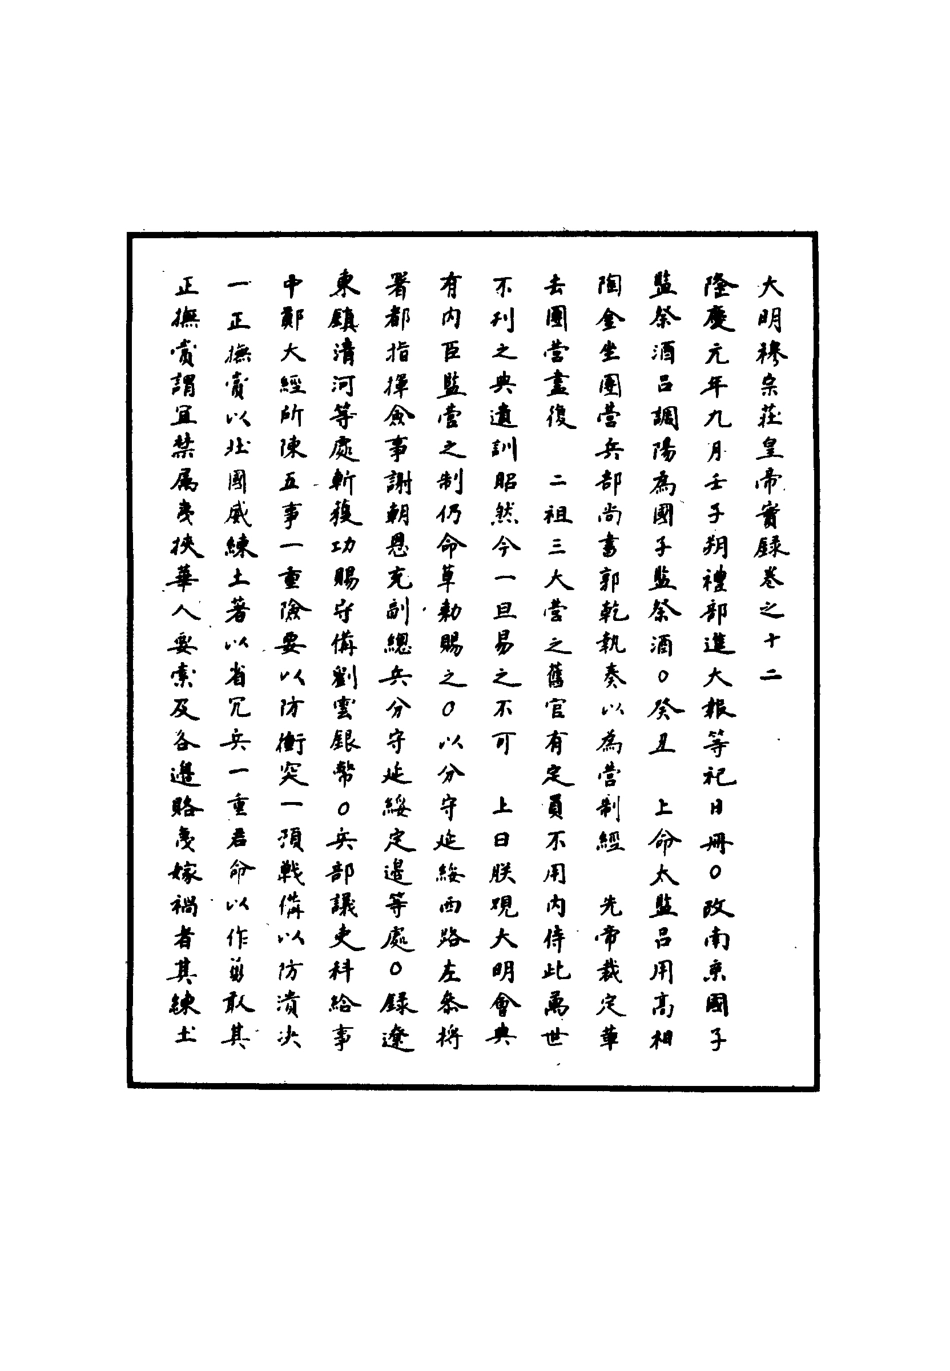 大明穆宗莊皇帝實錄卷之十二
隆慶元年九月壬子朔禮部進大報等祀日冊○改南京國子
監祭酒呂調陽為國子監祭酒○癸丑　上命太監呂用高相
陶金坐團營兵部尚書郭乾執奏以為營制經　先帝裁定革
去團營盡復　二祖三大營之舊官有定員不用內侍此萬世
不刊之典遺訓昭然今一旦易之不可　上曰朕覩大明會典
有內臣監營之制仍命草勑賜之○以分守延綏西路左叅將
署都指揮僉事謝朝恩充副總兵分守延綏定邊等處○錄遼
東鎮清河等處斬獲功賜守備劉雲銀幣○兵部議吏科給事
中鄭大經所陳五事一重險要以防衝突一預戰備以防潰決
一正撫賞以壯國威練土著以省冗兵一重君命以作勇敢其
正撫賞謂宜禁屬夷挾華人要索及各邊賂夷嫁禍者其練土